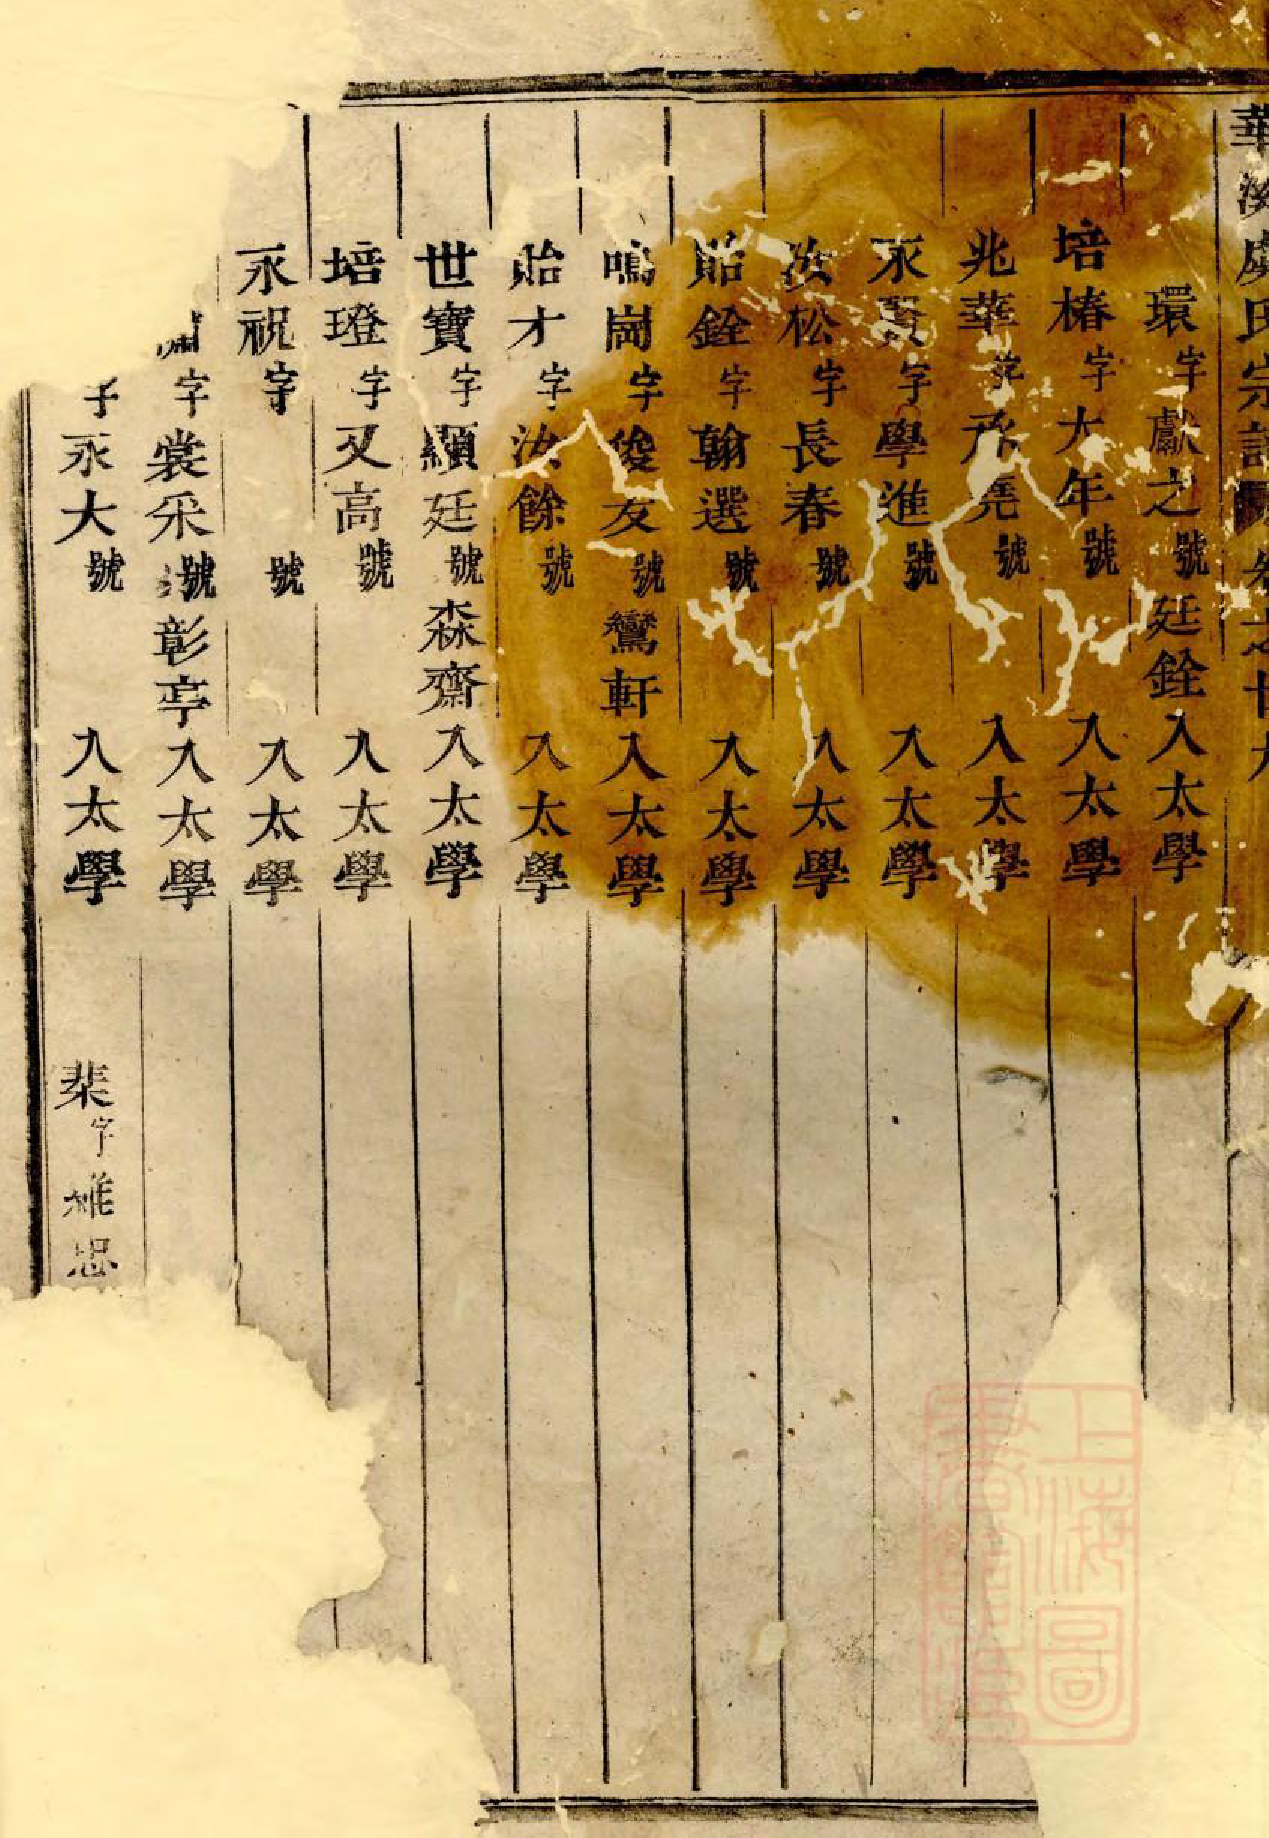 華 虞氏宗譜 卷之廿九
環字獻之號廷銓入太學
培椿字大年號入太學
兆華字堯號入太學
永賢字學進號入太學
汝松字長春號入太學
貽銓字翰選號入太學
鳴崗字俊友號鸞軒入太學
貽才字汝餘號入太學
世寶字顯廷號森齋入太學
培璒字又高號入太學
永祝字號入太學
字裳采號彰亭入太學
字永大號入太學 棐字維忠
上海圖書館藏